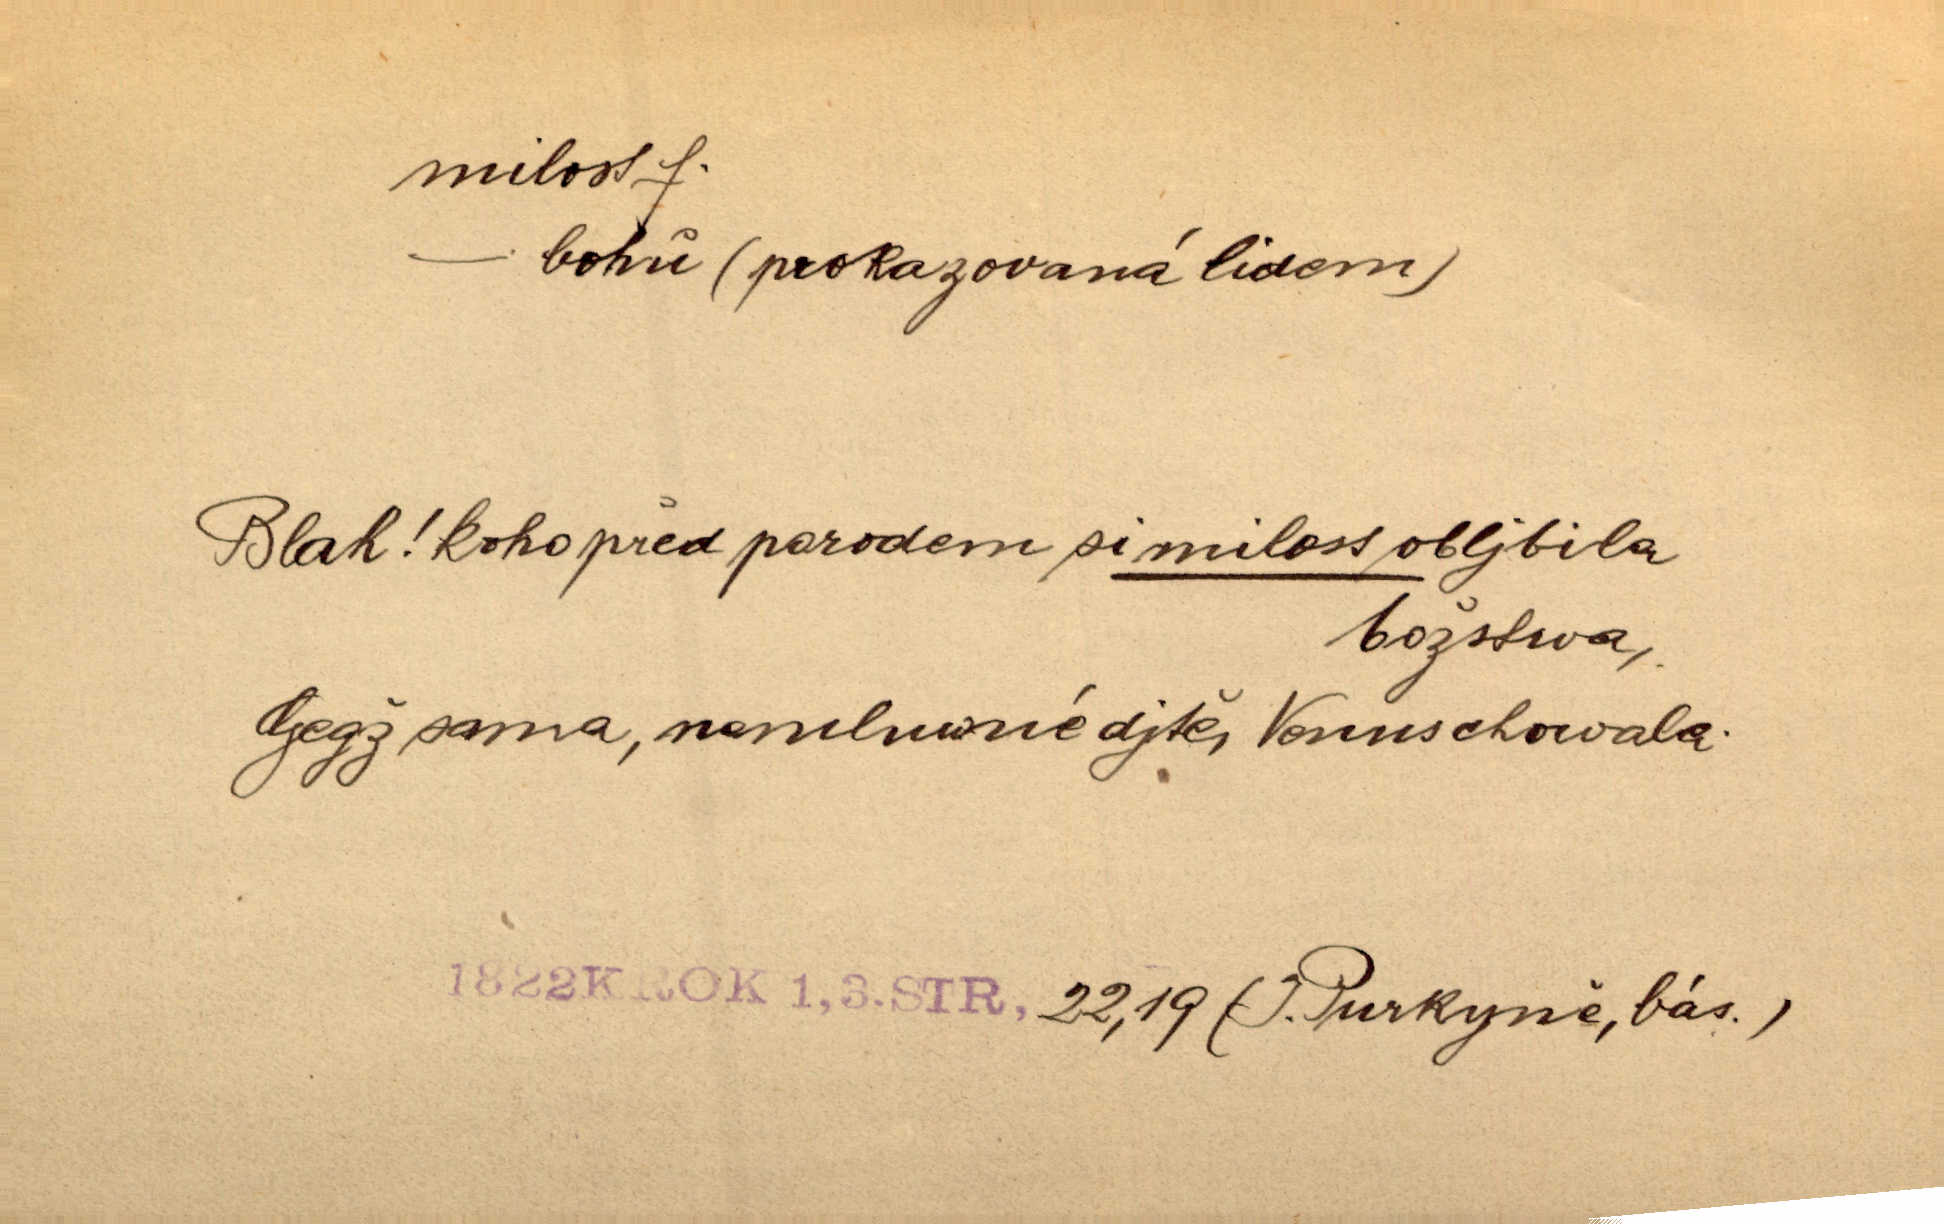 milost f.
— bohů (prokazovaná lidem)
Blah! koho před porodem si milost obljbila
božstwa,
Gegž sama, nemluwné djtě, Venus chowala.
1822 KROK 1, 3. STR, 22,19 (J. Purkyně, bás.)